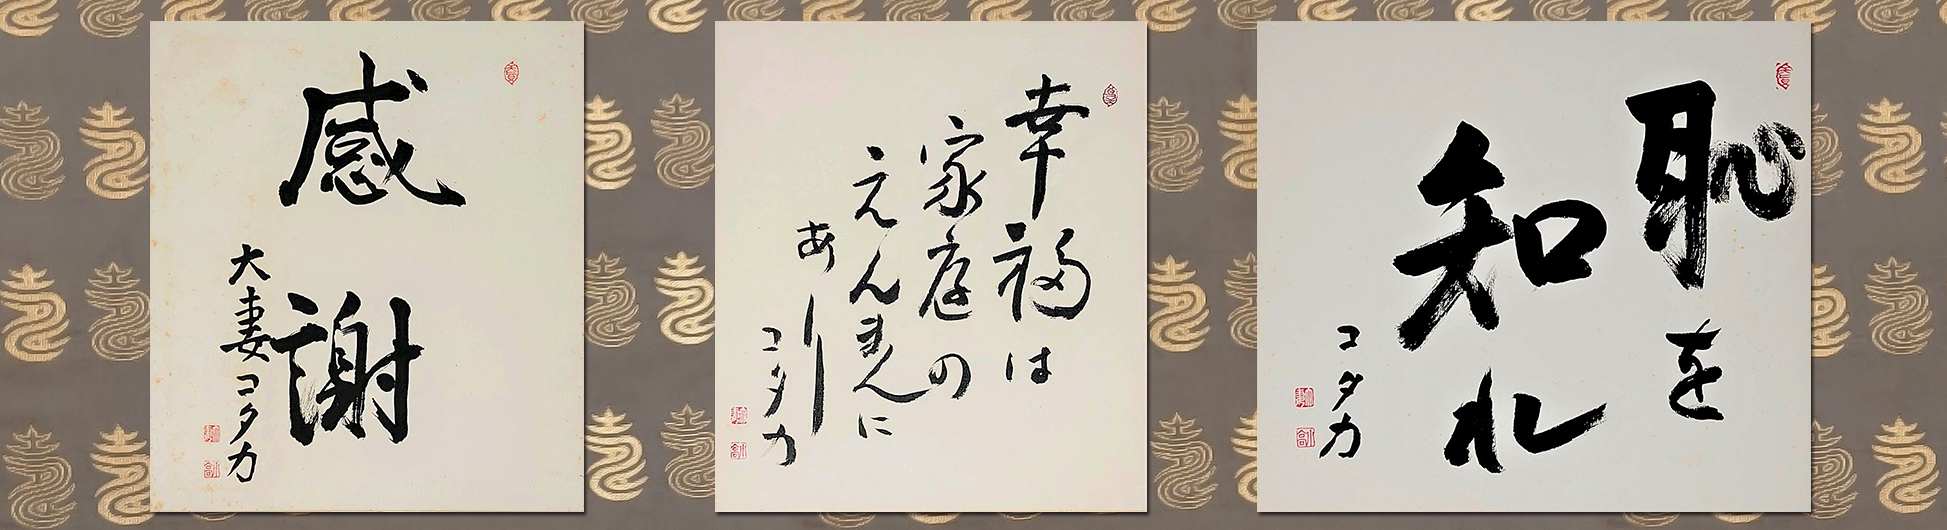 感
謝
大妻コタカ
幸福は
家庭の
えんまんに
あり
コタカ
恥を
知れ
コタカ